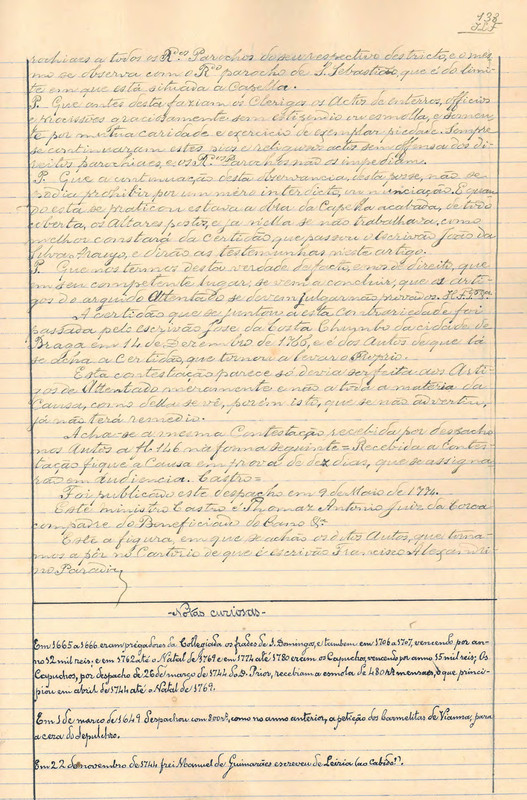 138
rochiaes a todos os R.dos Parochos do seu respectivo destricto, e o mes-
mo se observa com o R.do parocho de S. Sebastião, que é do limi-
te em que está situada a Capella.
P. Que antes desta faziam os Clerigos os Actos de enterros, officios
e procissões graciosamente sem estipendio ou esmolla, e somen-
te por mutua caridade e exercicio de exemplar piedade. Sempre
se continuaram estes pios e religiosos actos sem offensa dos di-
reitos parochiaes, e os R.dos Parochos não os impediam.
P. Que a continuação desta observancia, desta posse, não se
podia prohibir por um méro interdicto, ou nunciação. E quan-
do esta se praticou estava a obra da Capella acabada, de todo
coberta, os Altares postos, e já nella se não trabalhava, como
melhor constará da Certidão que passou o Escrivão João da
Silva Araujo, e dirão as testemunhas neste artigo.
P. Que nos termos desta verdade de facto, e nos de direito, que
em seu competente lugar, se vem a concluir, que os Arti-
gos do arguido Attentado se devem julgar não provados.
A certidão que se juntou a esta contrariedade foi
passada pelo escrivão José da Costa Chumbo da cidade de
Braga em 14 de Dezembro de 1766, e é dos Autos de que lá
se acha a Certidão, que tornou a levar o Proprio.
Esta contestação parece só devia ser feita aos Arti-
gos de Attentado méramente e não a toda a materia da
Causa, como della se vê, porém isto, que se não advertiu,
já não terá remedio.
Acha-se a mesma Contestação recebida por despacho
nos Autos a fl. 146 na forma seguinte = Recebida a Contes-
tação fique a Causa em prova de dez dias, que se assigna-
rão em audiencia. Castro =
Foi publicado este despacho em 9 de Maio de 1774.
Este ministro Castro é Thomaz Antonio Juiz da Coroa
compadre do Beneficiado do Cano &.a
Este a figura, em que se achão os ditos Autos, que torna-
mos a pôr no Cartorio de que é escrivão Francisco Alexandri-
no Parada
-Notas curiosas-
Em 1665 a 1666 eram prégadores da Collegiada os frades de S. Domingo, e tambem em 1706 a 1707, vencendo por an-
no 12 mil reis; e em 1762 até o Natal de 1769 e em 1774 até 1780 eram os Capuchos, vencendo por anno 15 mil reis; Os
Capuchos, por despacho de 26 de março de 1744 do D. Prior, recebiam a esmola de 480 rs mensaes, o que princi-
piou em abril de 1744 até o Natal de 1769.
Em 1 de março de 1649 despachou com 800 rs, como no anno anterior, a petição dos Carmelitas de Vianna, para
a cera do sepulcro.
Em 22 de novembro de 1744 frei Manuel de Guimarães escreveu de Leiria (ao Cabido?).